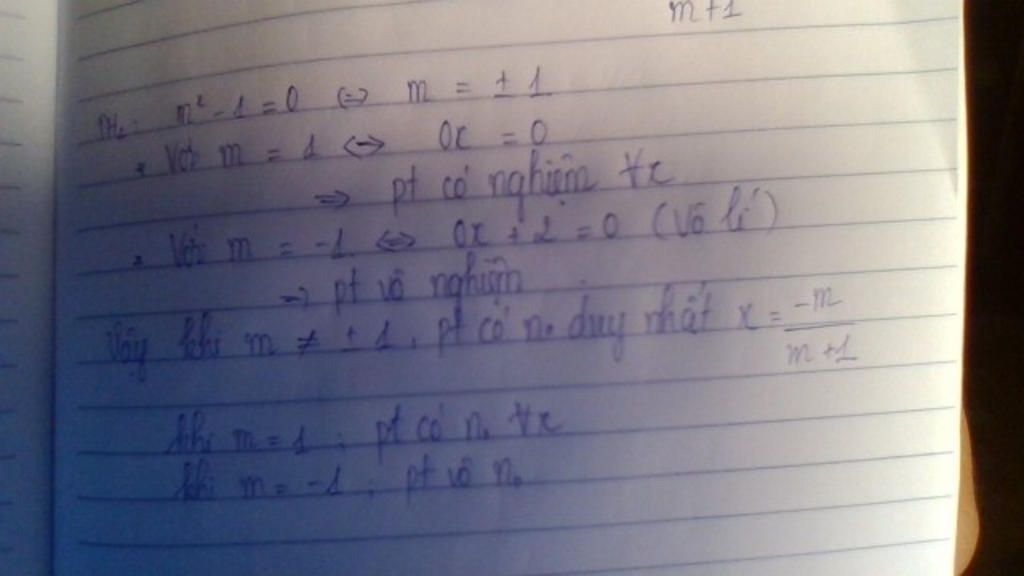 m+1
m² - 1 = 0 ⇔ m = ± 1
• Với m = 1 ⇔ 0x = 0
⇒ pt có nghiệm ∀x
• Với m = -1 ⇔ 0x + 2 = 0 (Vô lí)
⇒ pt vô nghiệm
Vậy khi m ≠ ± 1, pt có n₀ duy nhất x = -m / m+1
khi m = 1 ; pt có n₀ ∀x
khi m = -1 ; pt vô n₀